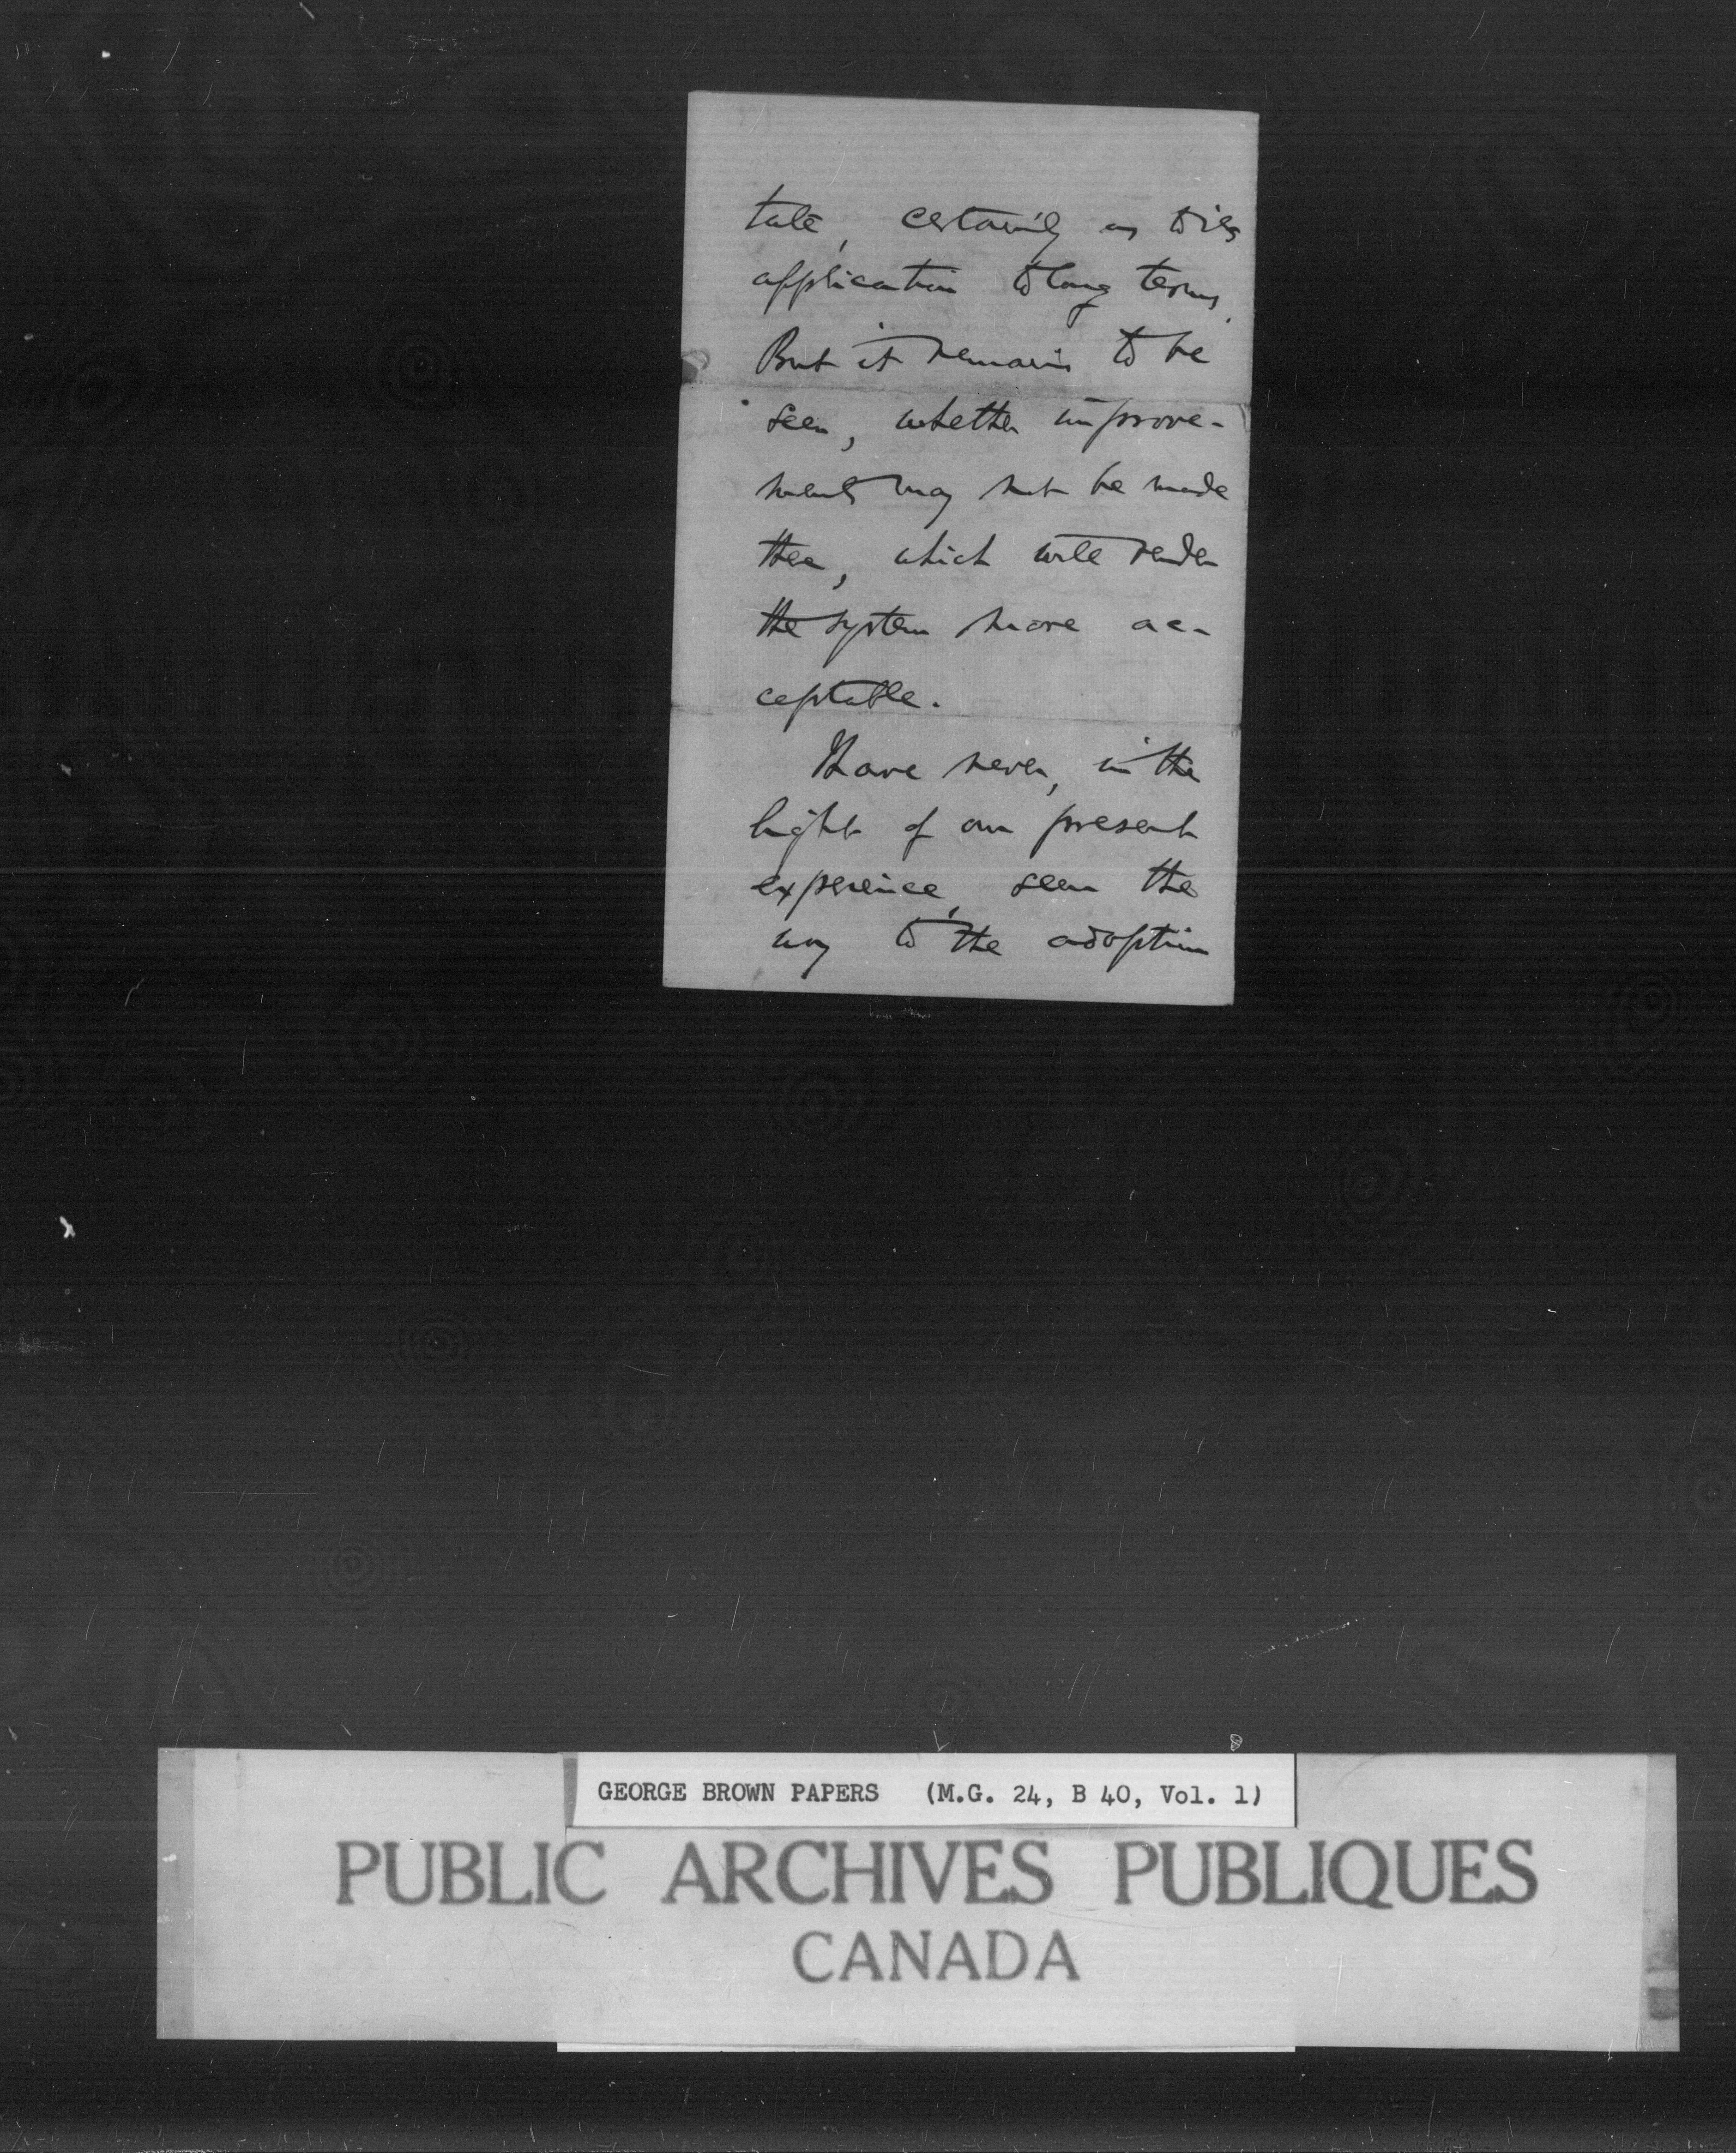 tate, certainly as to its
application to long terms.
But it remains to be
seen, whether improve-
ments may not be made
there, which will render
the system more ac-
ceptable.
I have never, in the
light of our present
experience, seen the
way to the adoption
GEORGE BROWN PAPERS (M.G. 24, B 40, Vol. 1)
PUBLIC ARCHIVES PUBLIQUES
CANADA